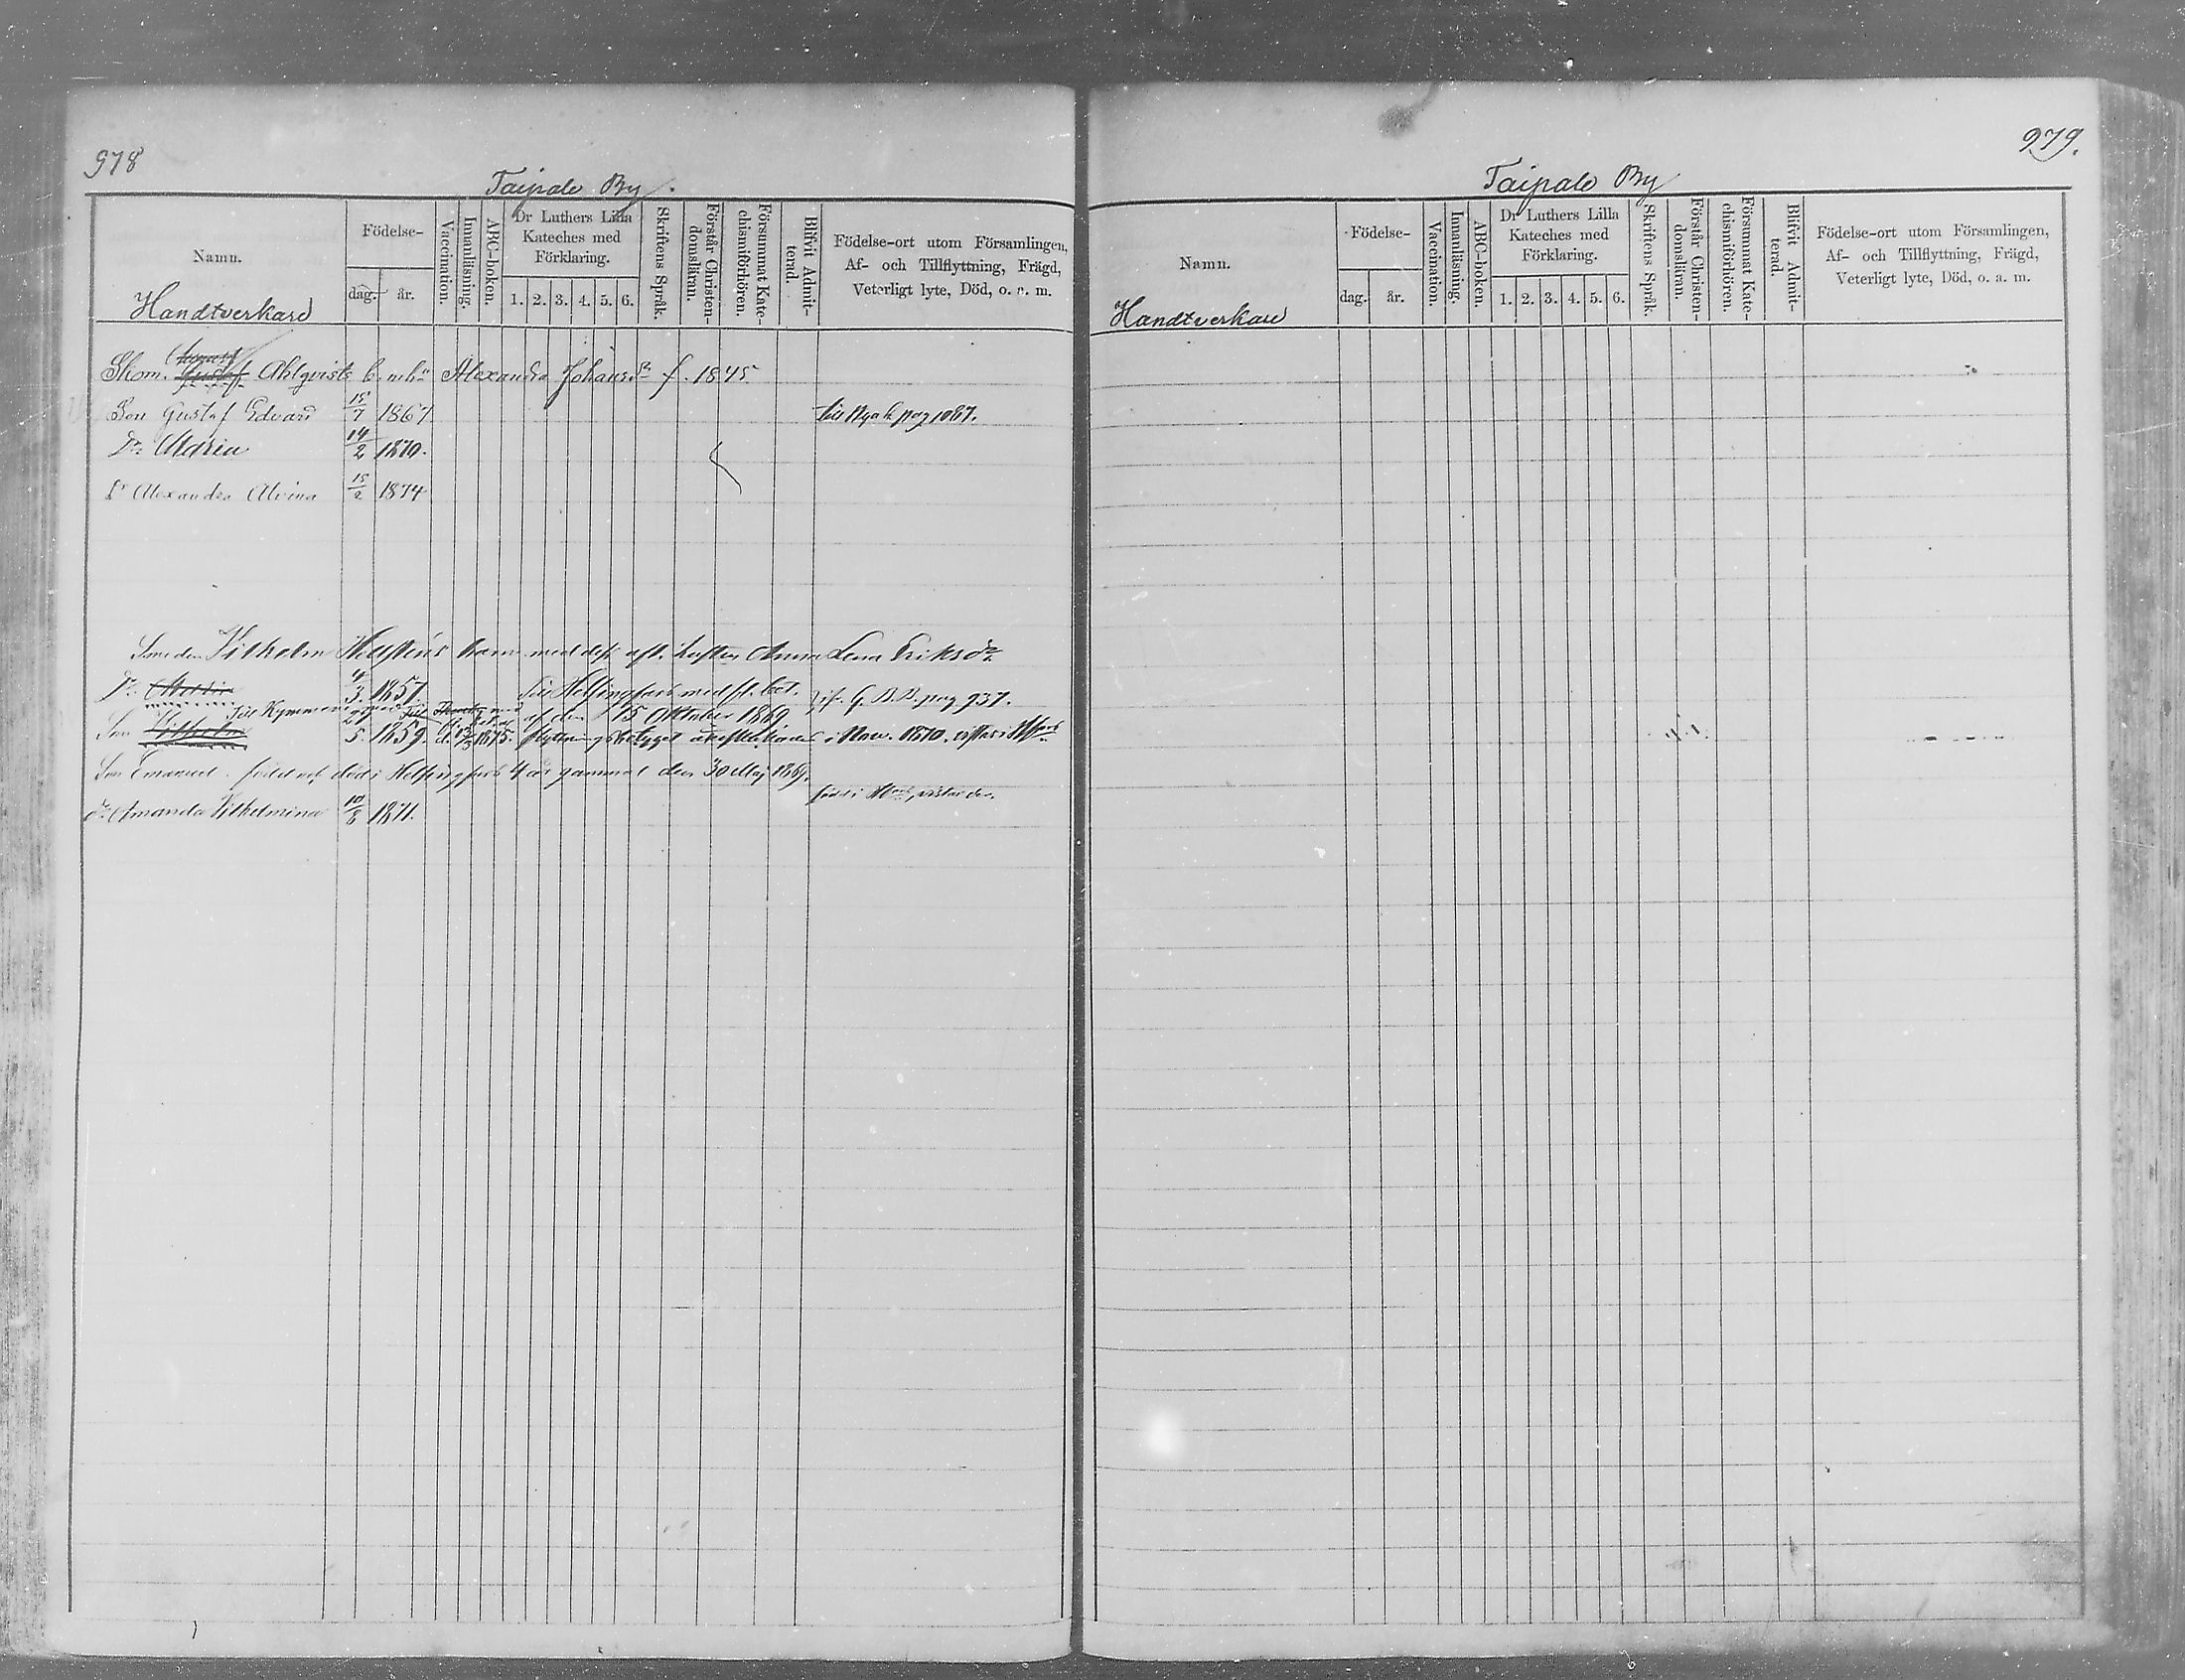 978
Taipale By.
Namn.
Födelse-
dag.
år.
Vaccination.
Innanläsning.
ABC-boken.
Dr Luthers Lilla
Kateches med
Förklaring.
1. 2. 3. 4. 5. 6.
Skriftens Språk.
Förstår Christen-
domsläran.
Försummat Kate-
chismiförhören.
Blifvit Admit-
terad.
Födelse-ort utom Församlingen,
Af- och Tillflyttning, Frägd,
Veterligt lyte, Död, o. a. m.
Handtverkare
August
Skom. Gustaf Ahlqvists Alexandra Johansdr f. 1845
Son Gustaf Edvard 18/7 1867 pag 1087.
Dr Maria 14/2 1870.
Dr Alexandra Alvina 15/2 1874
Smeden Vilhelm barn med dess afl. hustru Anna Lena Eriksdr
Dr 4/3. 1857. Till Helsingfors med fl. bet. G. B. pag 937.
Till Kymmene af den 15 Oktober 1869
Son Vilhelm 5. 1859. 1875. i Nov. 1870.
Son Emanuel. född och död i Helsingfors 4 år gammal den 30 Maj 1869.
född i
dr Amanda Vilhelmina 10/8 1871.
979.
Taipale By
Namn.
Födelse-
dag.
år.
Vaccination.
Innanläsning.
ABC-boken.
Dr Luthers Lilla
Kateches med
Förklaring.
1. 2. 3. 4. 5. 6.
Skriftens Språk.
Förstår Christen-
domsläran.
Försummat Kate-
chismiförhören.
Blifvit Admit-
terad.
Födelse-ort utom Församlingen,
Af- och Tillflyttning, Frägd,
Veterligt lyte, Död, o. a. m.
Handtverkare